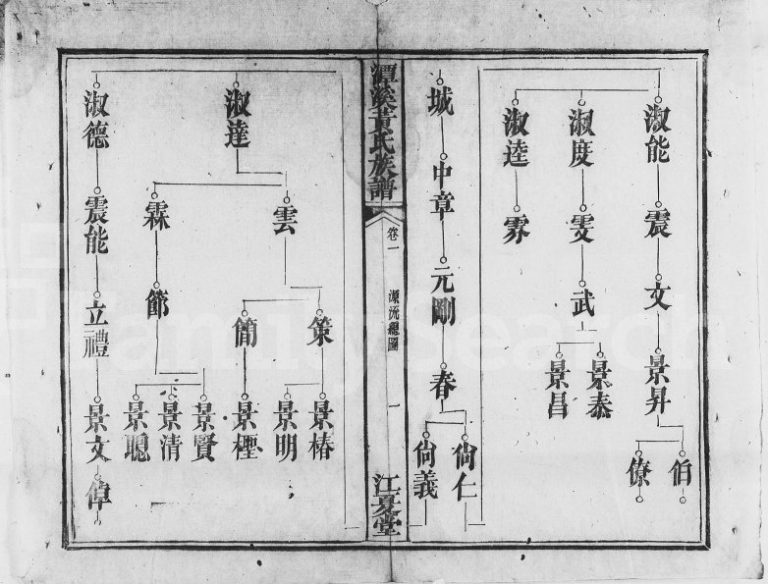 淑能
震
文
景昇
伯
僚
淑度
雯
武
景泰
景昌
淑逵
城
中章
元剛
春
尙仁
尙義
潭溪黃氏族譜
卷一
源流總圖
一
江夏堂
淑達
雲
策
景椿
景明
簡
景檉
霖
節
景賢
景清
景聰
淑德
震能
立禮
景文
偉
FamilySearch